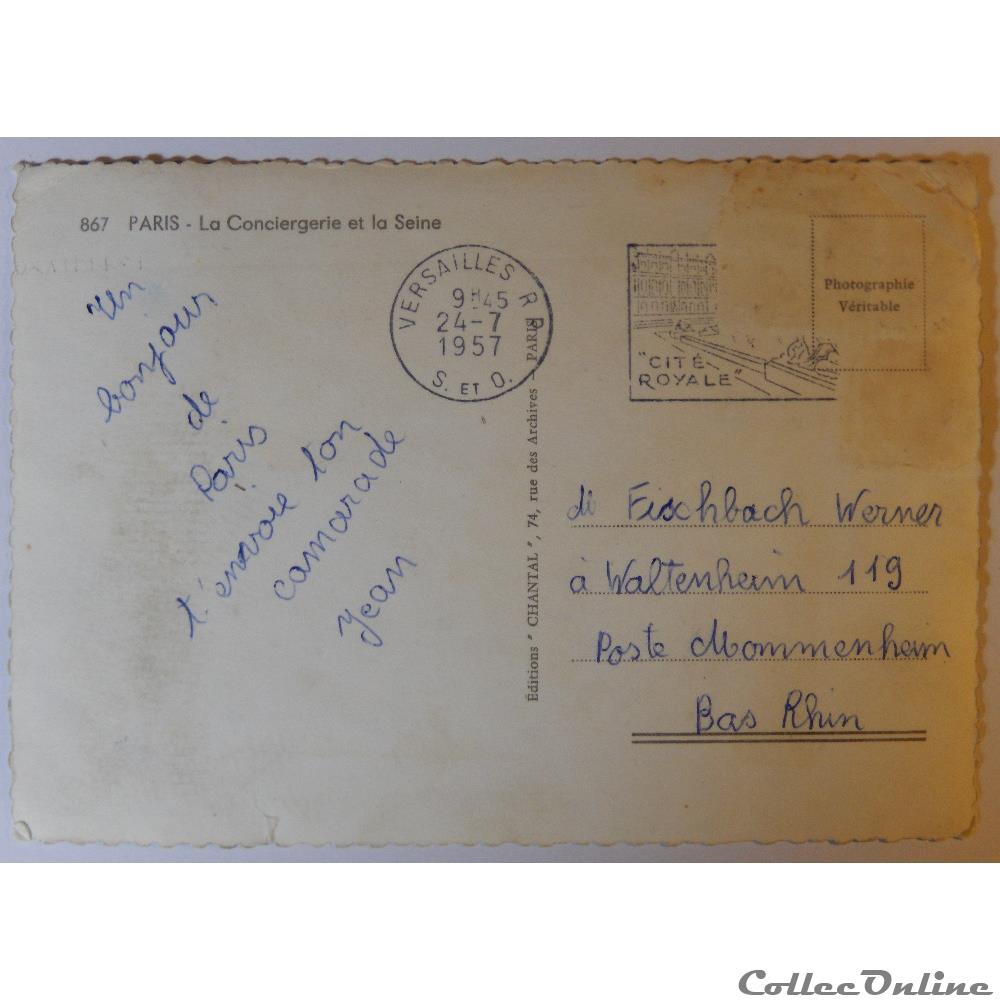 867 PARIS - La Conciergerie et la Seine
VERSAILLES R P
9H45
24-7
1957
S. ET O.
"CITÉ
ROYALE"
Photographie
Véritable
Un
bonjour
de
Paris
t'envoie ton
camarade
Jean
Éditions "CHANTAL", 74, rue des Archives - PARIS
Fischbach Werner
à Waltenheim 119
Poste Mommenheim
Bas Rhin
CollecOnline